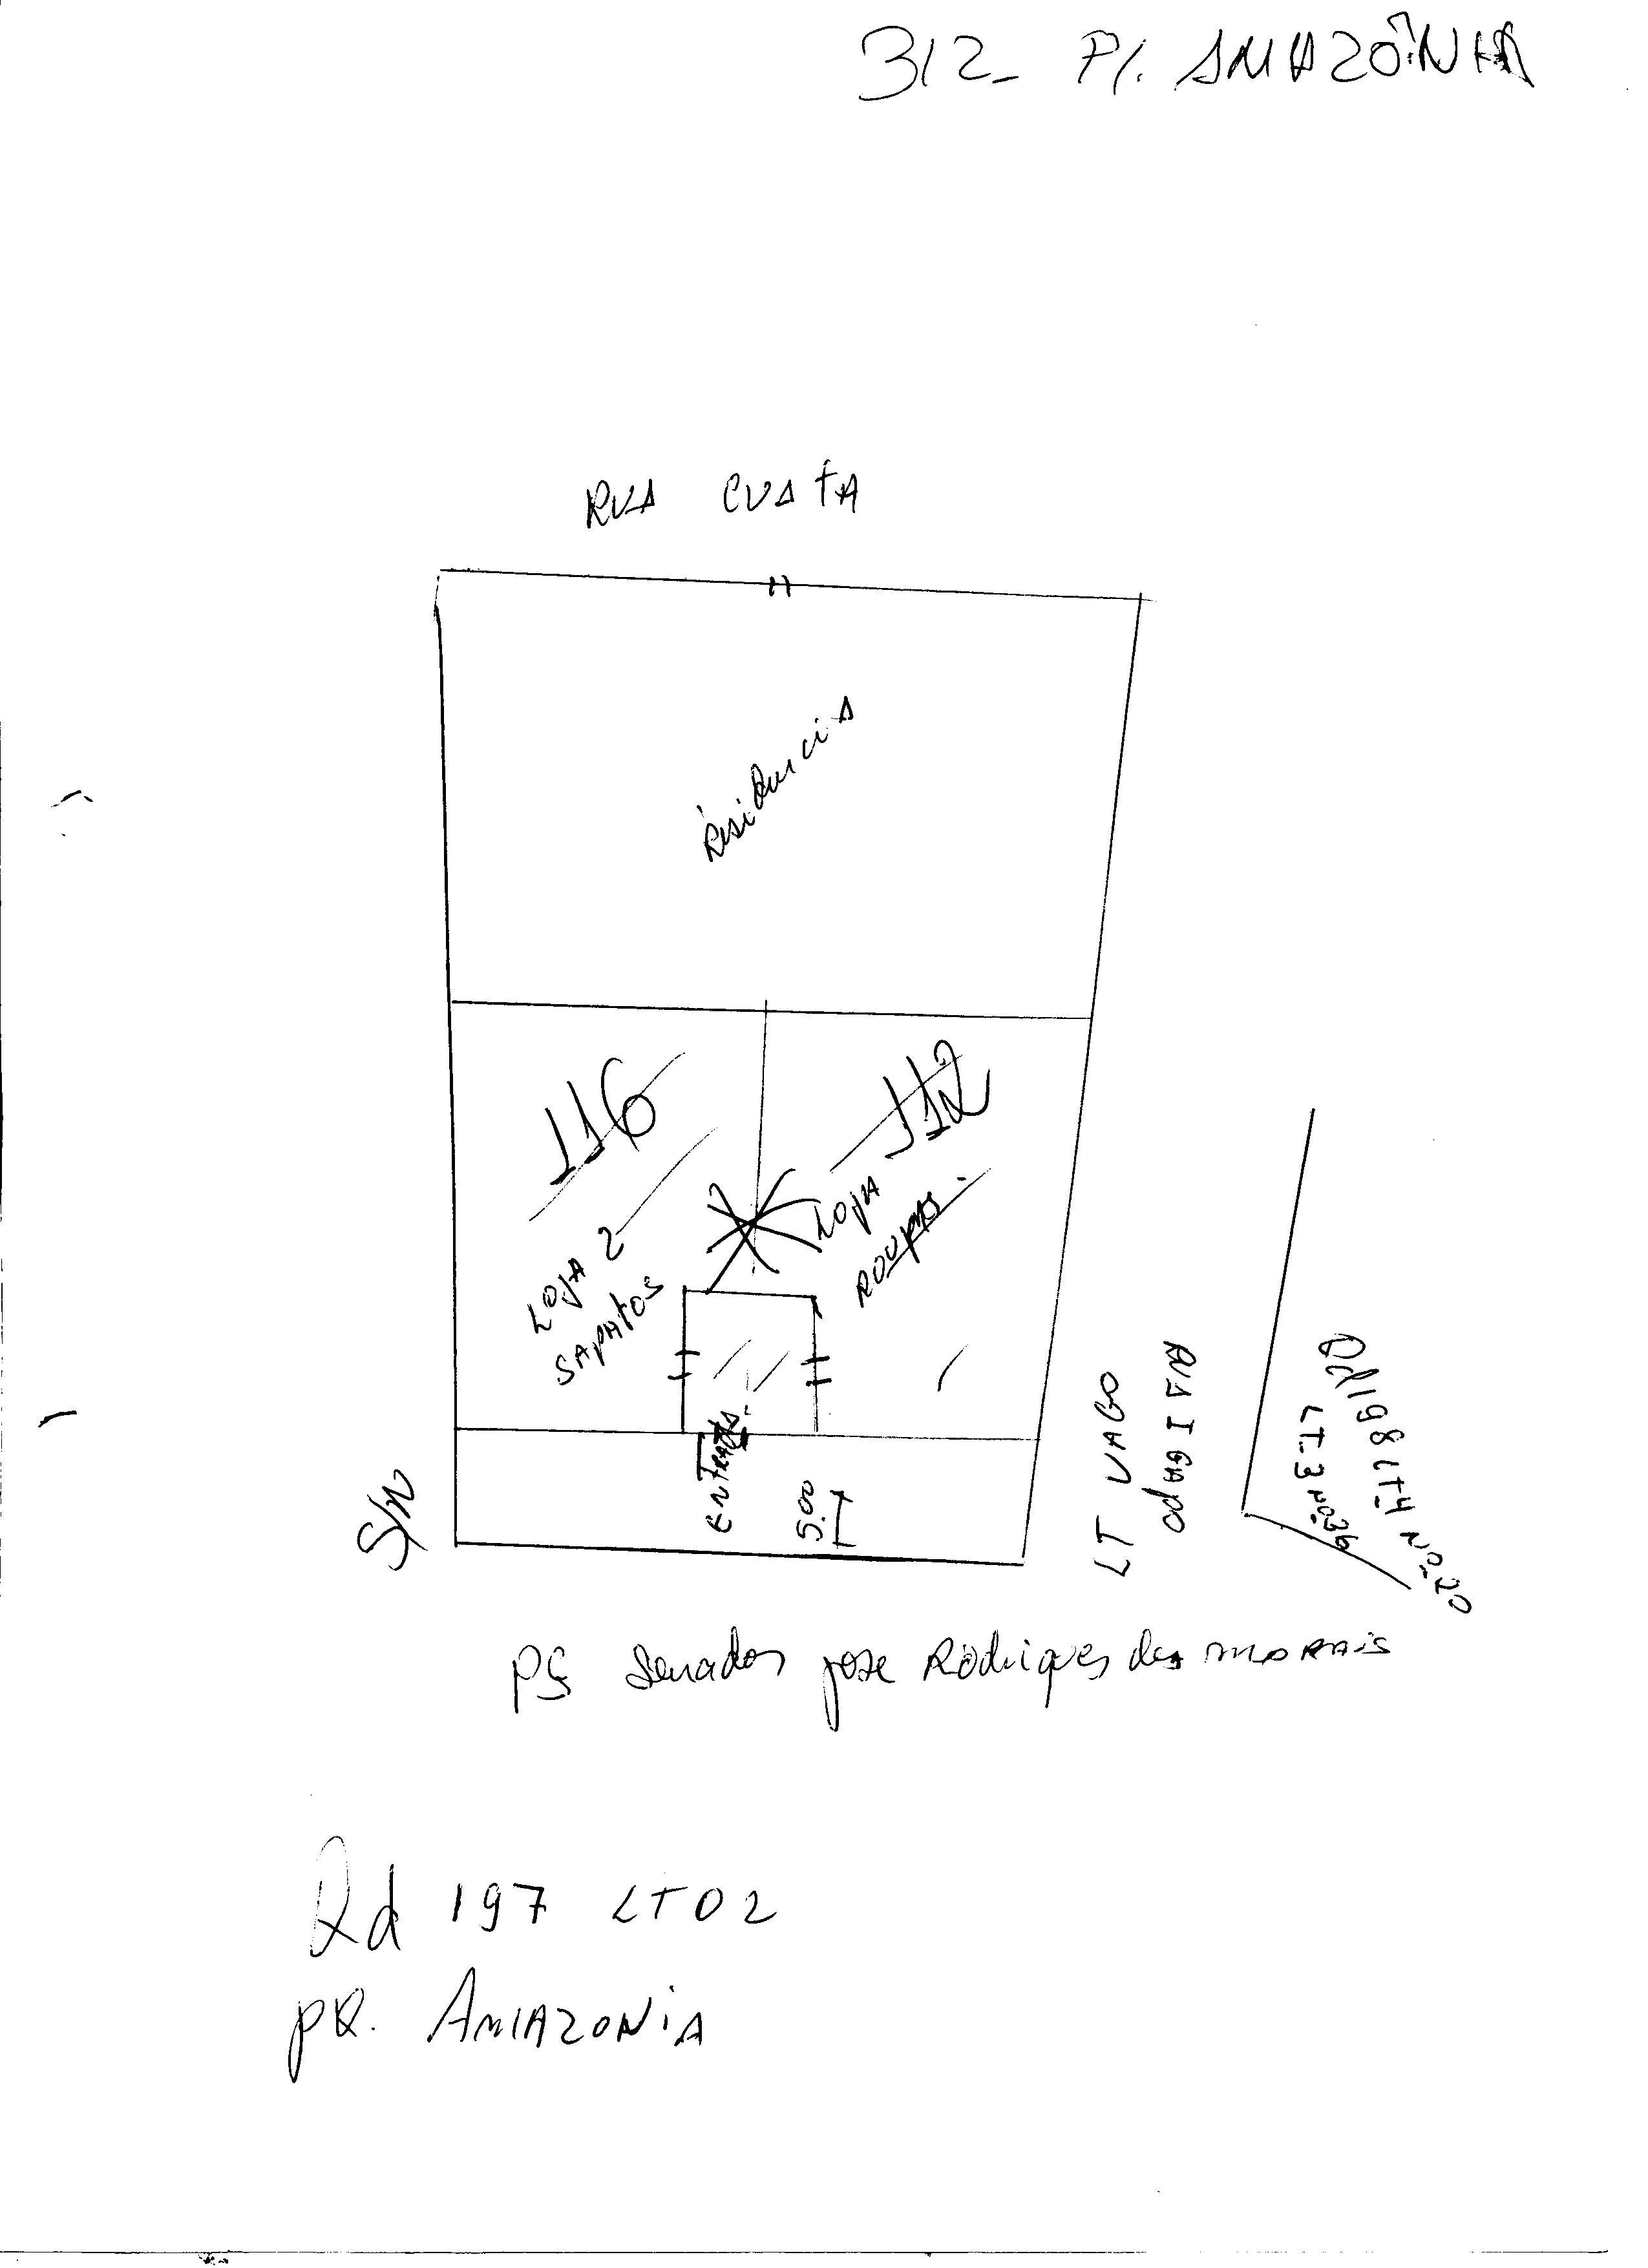 312- P/. AMAZÔNIA
RUA CUATA
Residencia
116
112
LOJA 2
SAPATOS
LOJA
ROUPAS.
ENTRADA.
5.00
S/N
LT VAGO
RUA IGAPO
Qd 198 LT 4 Nº 20
LT. 3 Nº 36
PÇ Senador jose Rodrigues de MORAIS
Qd 197 LT 02
PQ. AMAZONiA